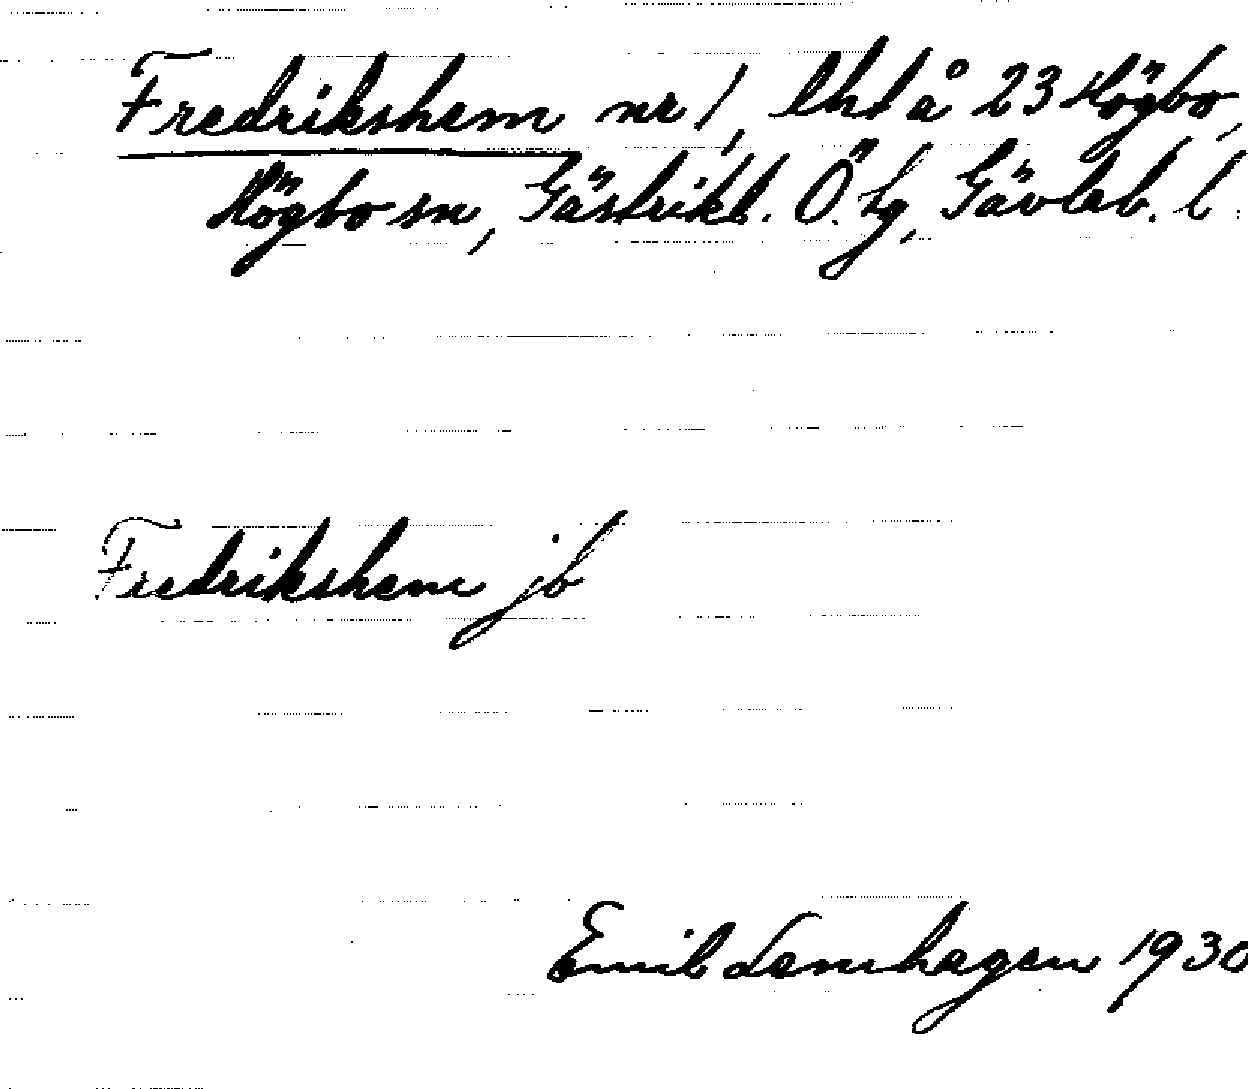 Fredrikshem nr 1, lht å 23 Högbo,
Högbo sn, Gästrikl. Ö. tg, Gävleb. l.
Fredrikshem jb
Emil Lennhagen 1930